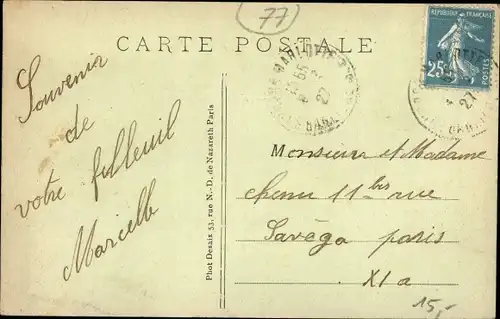 77
CARTE POSTALE
REPUBLIQUE FRANÇAISE
25c
POSTES
27
27
Souvenir
de
votre filleuil
Marcelle
Phot Desaix 53, rue N.-D. de Nazareth Paris
Monsieur et Madame
11 bis rue
Savega paris
XI a
15,-